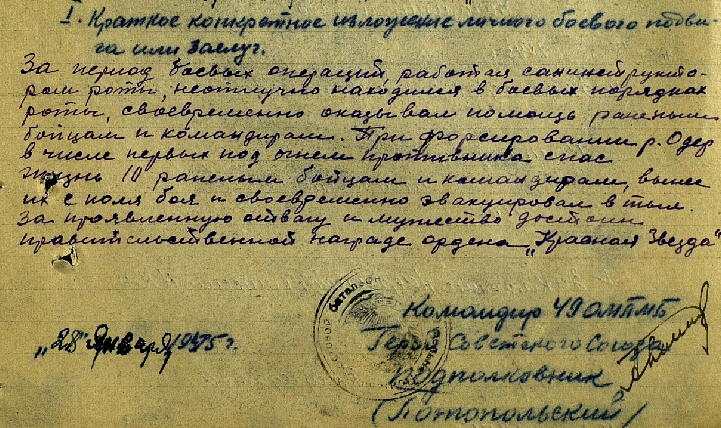 I. Краткое конкретное изложение личного боевого подви-
га или заслуг.
За период боевых операций, работая санинструкто-
ром роты, неотлучно находился в боевых порядках
роты, своевременно оказывал помощь раненым
бойцам и командирам. При форсировании р. Одер
в числе первых под огнем противника спас
жизнь 10 раненым бойцам и командирам, вынес
их с поля боя и своевременно эвакуировал в тыл.
За проявленную отвагу и мужество достоин
правительственной награде ордена „Красная Звезда"
Командир 49 ОМПМБ
„28" января 1945 г.
Герой Советского Союза
подполковник
(Потопольский)
батальон